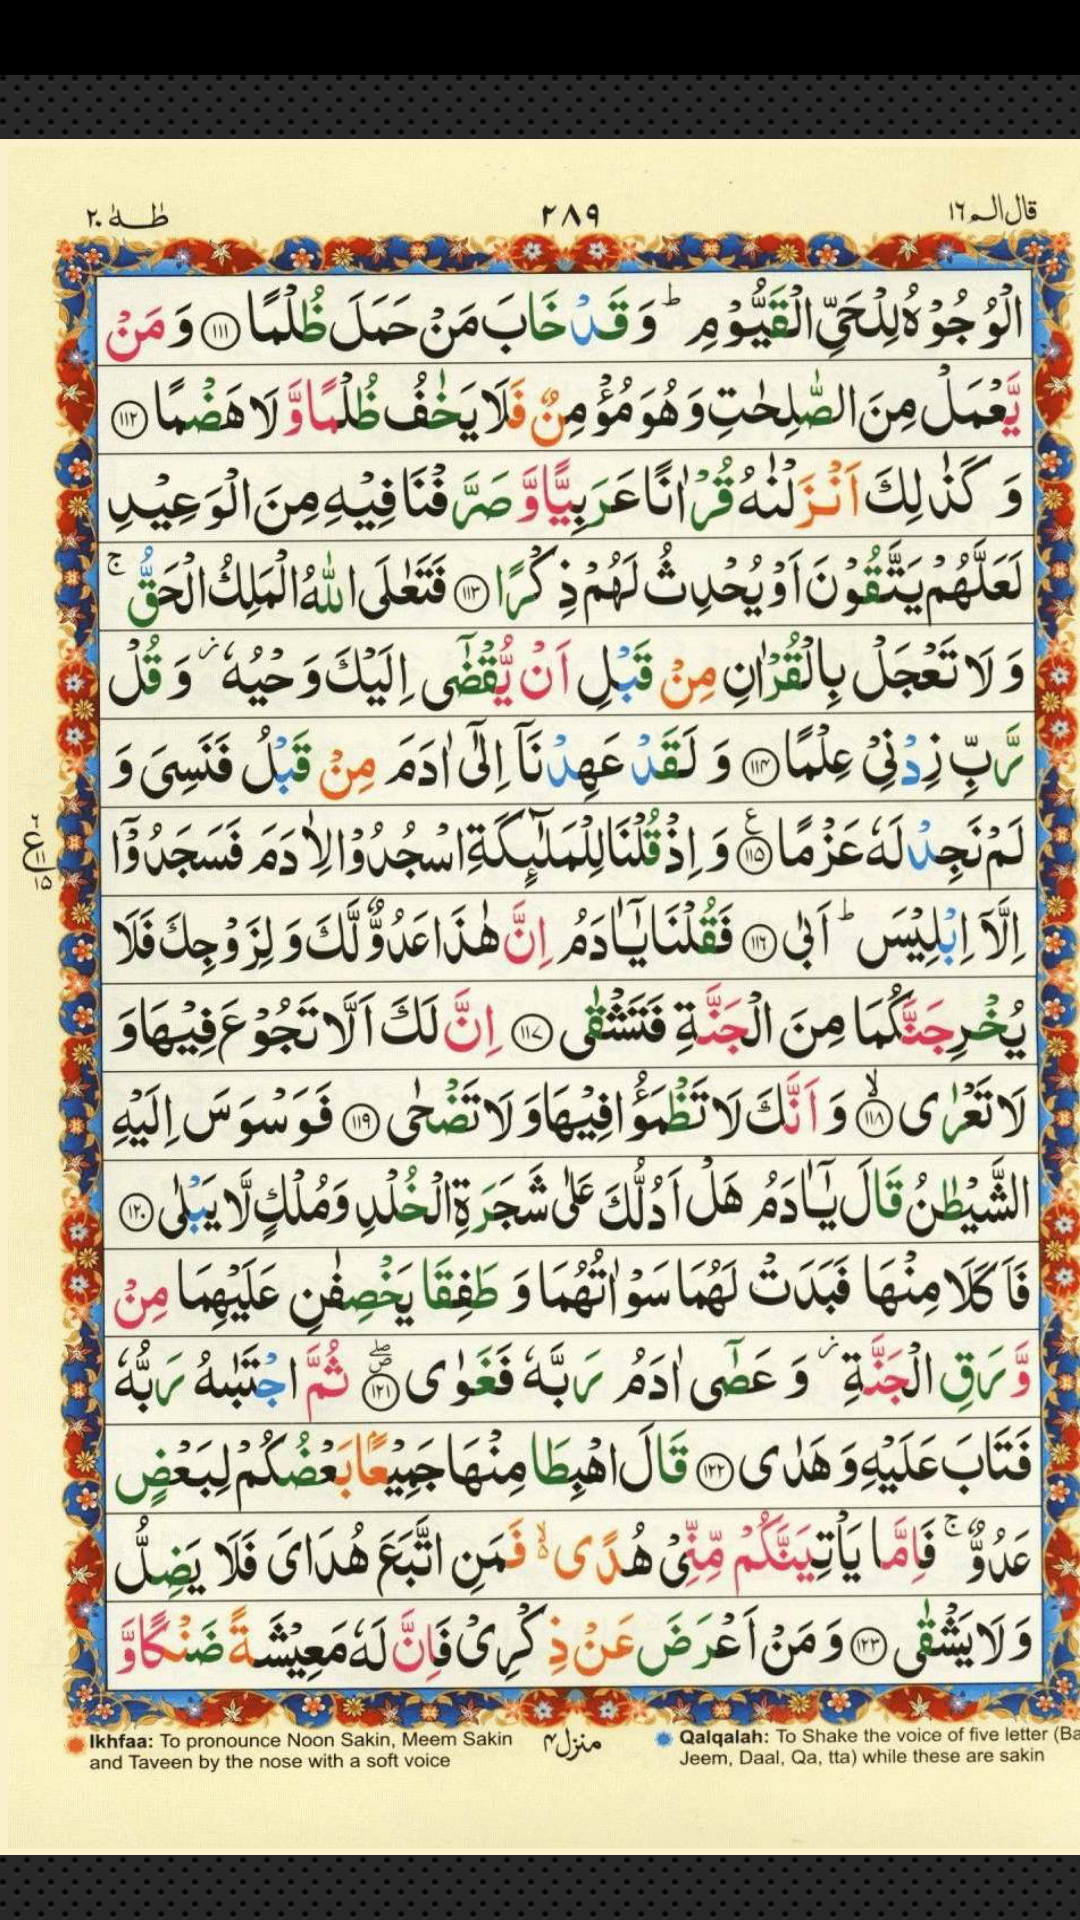 قال الم ١٦
٢٨٩
طٰهٰ ٢٠
الْوُجُوْهُ لِلْحَيِّ الْقَيُّوْمِ ؕ وَ قَدْ خَابَ مَنْ حَمَلَ ظُلْمًا ﴿۱۱۱﴾ وَ مَنْ
يَّعْمَلْ مِنَ الصّٰلِحٰتِ وَ هُوَ مُؤْمِنٌ فَلَا يَخٰفُ ظُلْمًا وَّ لَا هَضْمًا ﴿۱۱۲﴾
وَ كَذٰلِكَ اَنْزَلْنٰهُ قُرْاٰنًا عَرَبِيًّا وَّ صَرَّفْنَا فِيْهِ مِنَ الْوَعِيْدِ
لَعَلَّهُمْ يَتَّقُوْنَ اَوْ يُحْدِثُ لَهُمْ ذِكْرًا ﴿۱۱۳﴾ فَتَعٰلَى اللّٰهُ الْمَلِكُ الْحَقُّ ۚ
وَ لَا تَعْجَلْ بِالْقُرْاٰنِ مِنْ قَبْلِ اَنْ يُّقْضٰۤى اِلَيْكَ وَحْيُهٗ ؗ وَ قُلْ
رَّبِّ زِدْنِيْ عِلْمًا ﴿۱۱۴﴾ وَ لَقَدْ عَهِدْنَاۤ اِلٰۤى اٰدَمَ مِنْ قَبْلُ فَنَسِيَ وَ
لَمْ نَجِدْ لَهٗ عَزْمًا ﴿۱۱۵﴾ وَ اِذْ قُلْنَا لِلْمَلٰٓئِكَةِ اسْجُدُوْا لِاٰدَمَ فَسَجَدُوْۤا
ع
١١
١٥
اِلَّاۤ اِبْلِيْسَ ؕ اَبٰى ﴿۱۱۶﴾ فَقُلْنَا يٰۤاٰدَمُ اِنَّ هٰذَا عَدُوٌّ لَّكَ وَ لِزَوْجِكَ فَلَا
يُخْرِجَنَّكُمَا مِنَ الْجَنَّةِ فَتَشْقٰى ﴿۱۱۷﴾ اِنَّ لَكَ اَلَّا تَجُوْعَ فِيْهَا وَ
لَا تَعْرٰى ﴿۱۱۸﴾ۙ وَ اَنَّكَ لَا تَظْمَؤُا فِيْهَا وَ لَا تَضْحٰى ﴿۱۱۹﴾ فَوَسْوَسَ اِلَيْهِ
الشَّيْطٰنُ قَالَ يٰۤاٰدَمُ هَلْ اَدُلُّكَ عَلٰى شَجَرَةِ الْخُلْدِ وَ مُلْكٍ لَّا يَبْلٰى ﴿۱۲۰﴾
فَاَكَلَا مِنْهَا فَبَدَتْ لَهُمَا سَوْاٰتُهُمَا وَ طَفِقَا يَخْصِفٰنِ عَلَيْهِمَا مِنْ
وَّرَقِ الْجَنَّةِ ؗ وَ عَصٰۤى اٰدَمُ رَبَّهٗ فَغَوٰى ﴿۱۲۱﴾ ثُمَّ اجْتَبٰىهُ رَبُّهٗ
فَتَابَ عَلَيْهِ وَ هَدٰى ﴿۱۲۲﴾ قَالَ اهْبِطَا مِنْهَا جَمِيْعًۢا بَعْضُكُمْ لِبَعْضٍ
عَدُوٌّ ۚ فَاِمَّا يَاْتِيَنَّكُمْ مِّنِّيْ هُدًى ۙ۬ فَمَنِ اتَّبَعَ هُدَايَ فَلَا يَضِلُّ
وَ لَا يَشْقٰى ﴿۱۲۳﴾ وَ مَنْ اَعْرَضَ عَنْ ذِكْرِيْ فَاِنَّ لَهٗ مَعِيْشَةً ضَنْكًا وَّ
Ikhfaa: To pronounce Noon Sakin, Meem Sakin
and Taveen by the nose with a soft voice
منزل ٤
Qalqalah: To Shake the voice of five letter (Ba
Jeem, Daal, Qa, tta) while these are sakin